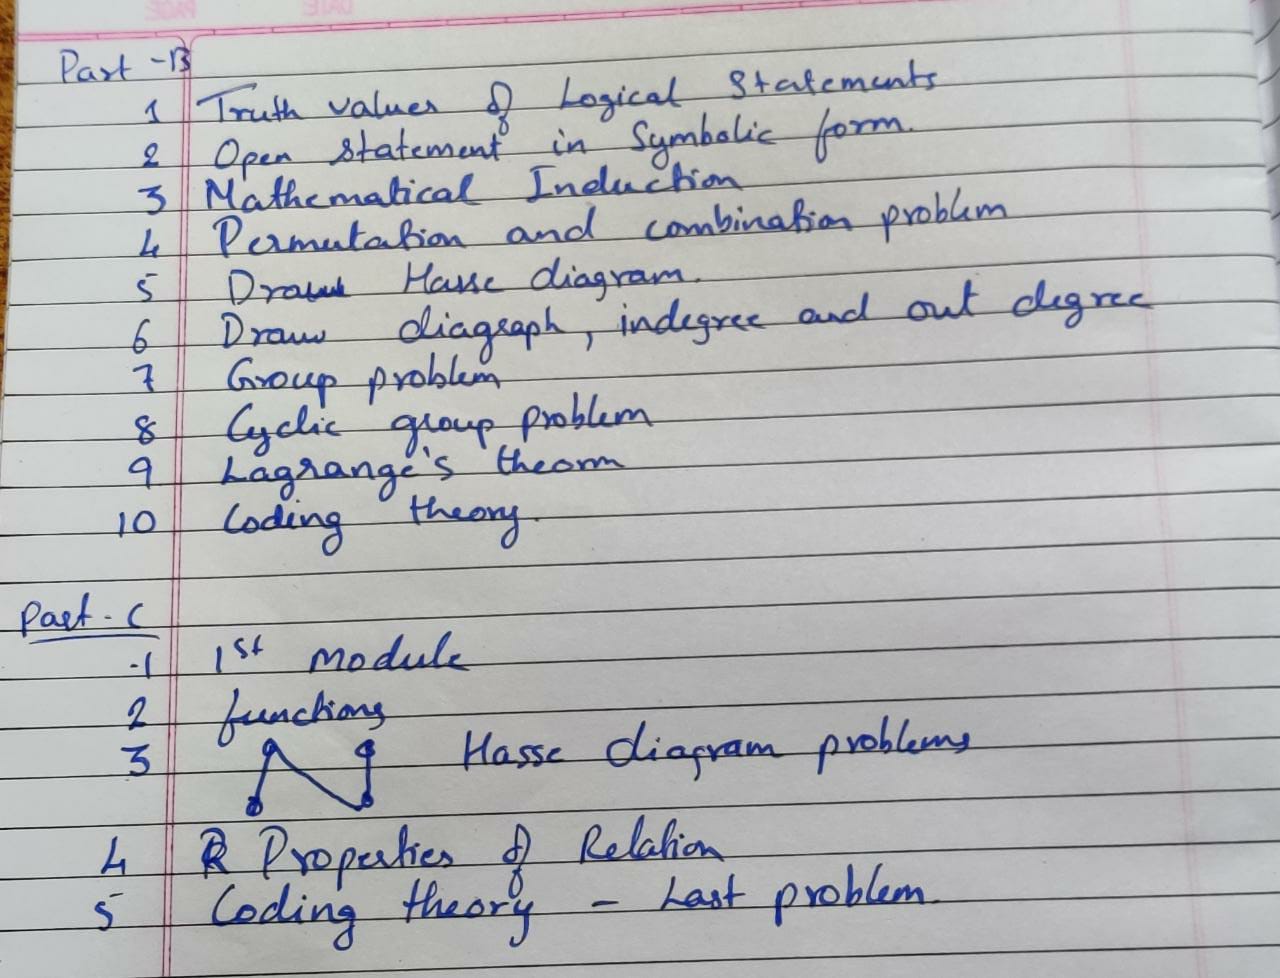 PAGE DATE
Part - B
1 Truth values of Logical Statements
2 Open statement in Symbolic form.
3 Mathematical Induction
4 Permutation and combination problem
5 Draw Hasse diagram.
6 Draw diagraph, indegree and out degree
7 Group problem
8 Cyclic group problem
9 Lagrange's theorm
10 Coding theory.
Part - C
1 1st module
2 functions
3 Hasse diagram problems
4 Properties of Relation
5 Coding theory - Last problem.